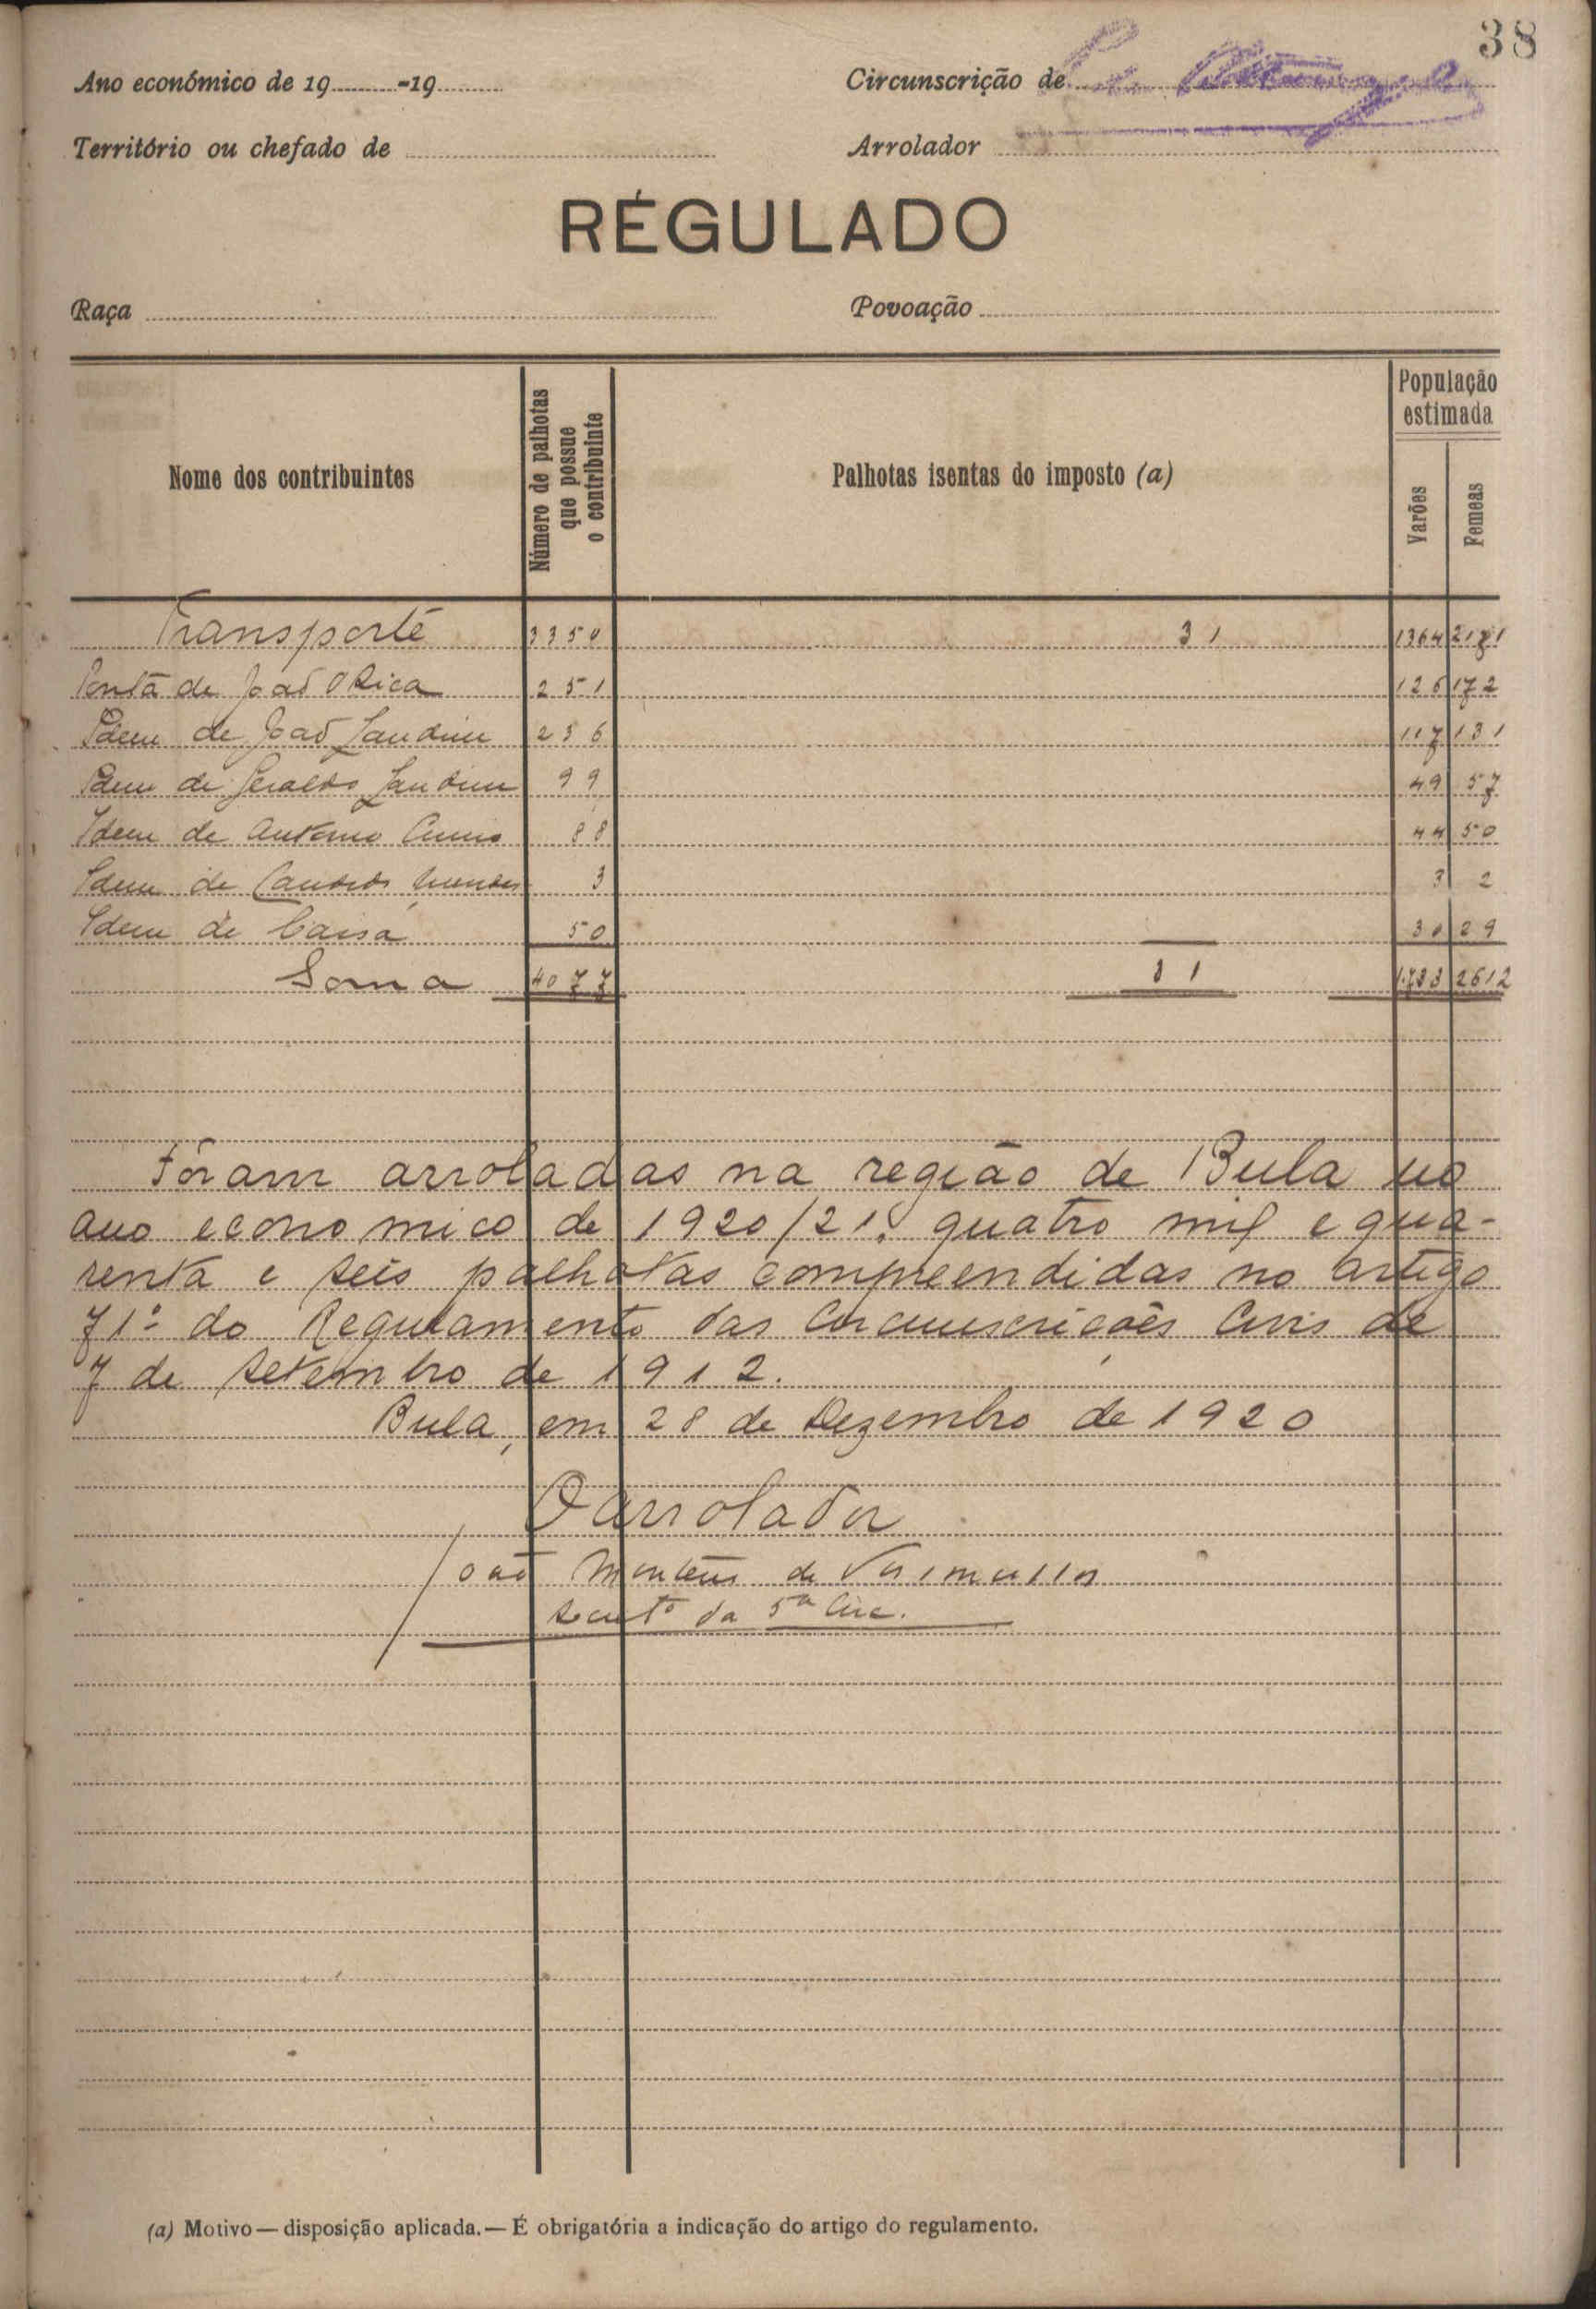 38
Ano económico de 19 -19
Circunscrição de
Território ou chefado de
Arrolador
RÉGULADO
Raça
Povoação
Nome dos contribuintes
Número de palhotas que possue o contribuinte
Palhotas isentas do imposto (a)
População estimada
Varões
Femeas
Transporte 3350 31 1364 2171
Ponta de João 251 126 172
Idem de João Landim 236 117 131
Idem de Geraldo Landim 99 49 57
Idem de Antonio 88 44 50
Idem de Candido Mendes 3 3 2
Idem de 50 30 29
Soma 4077 31 1733 2612
Fôram arroladas na região de Bula no
ano economico de 1920/21, quatro mil e qua-
renta e seis palhotas compreendidas no artigo
71º do Regulamento das Circunscrições Civis de
7 de setembro de 1912.
Bula, em 28 de Dezembro de 1920
O arrolador
João de
da 5ª Circ.
(a) Motivo — disposição aplicada. — É obrigatória a indicação do artigo do regulamento.